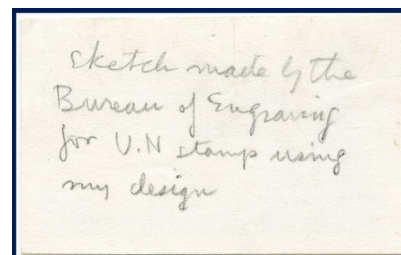 sketch made by the
Bureau of Engraving
for U.N stamp using
my design